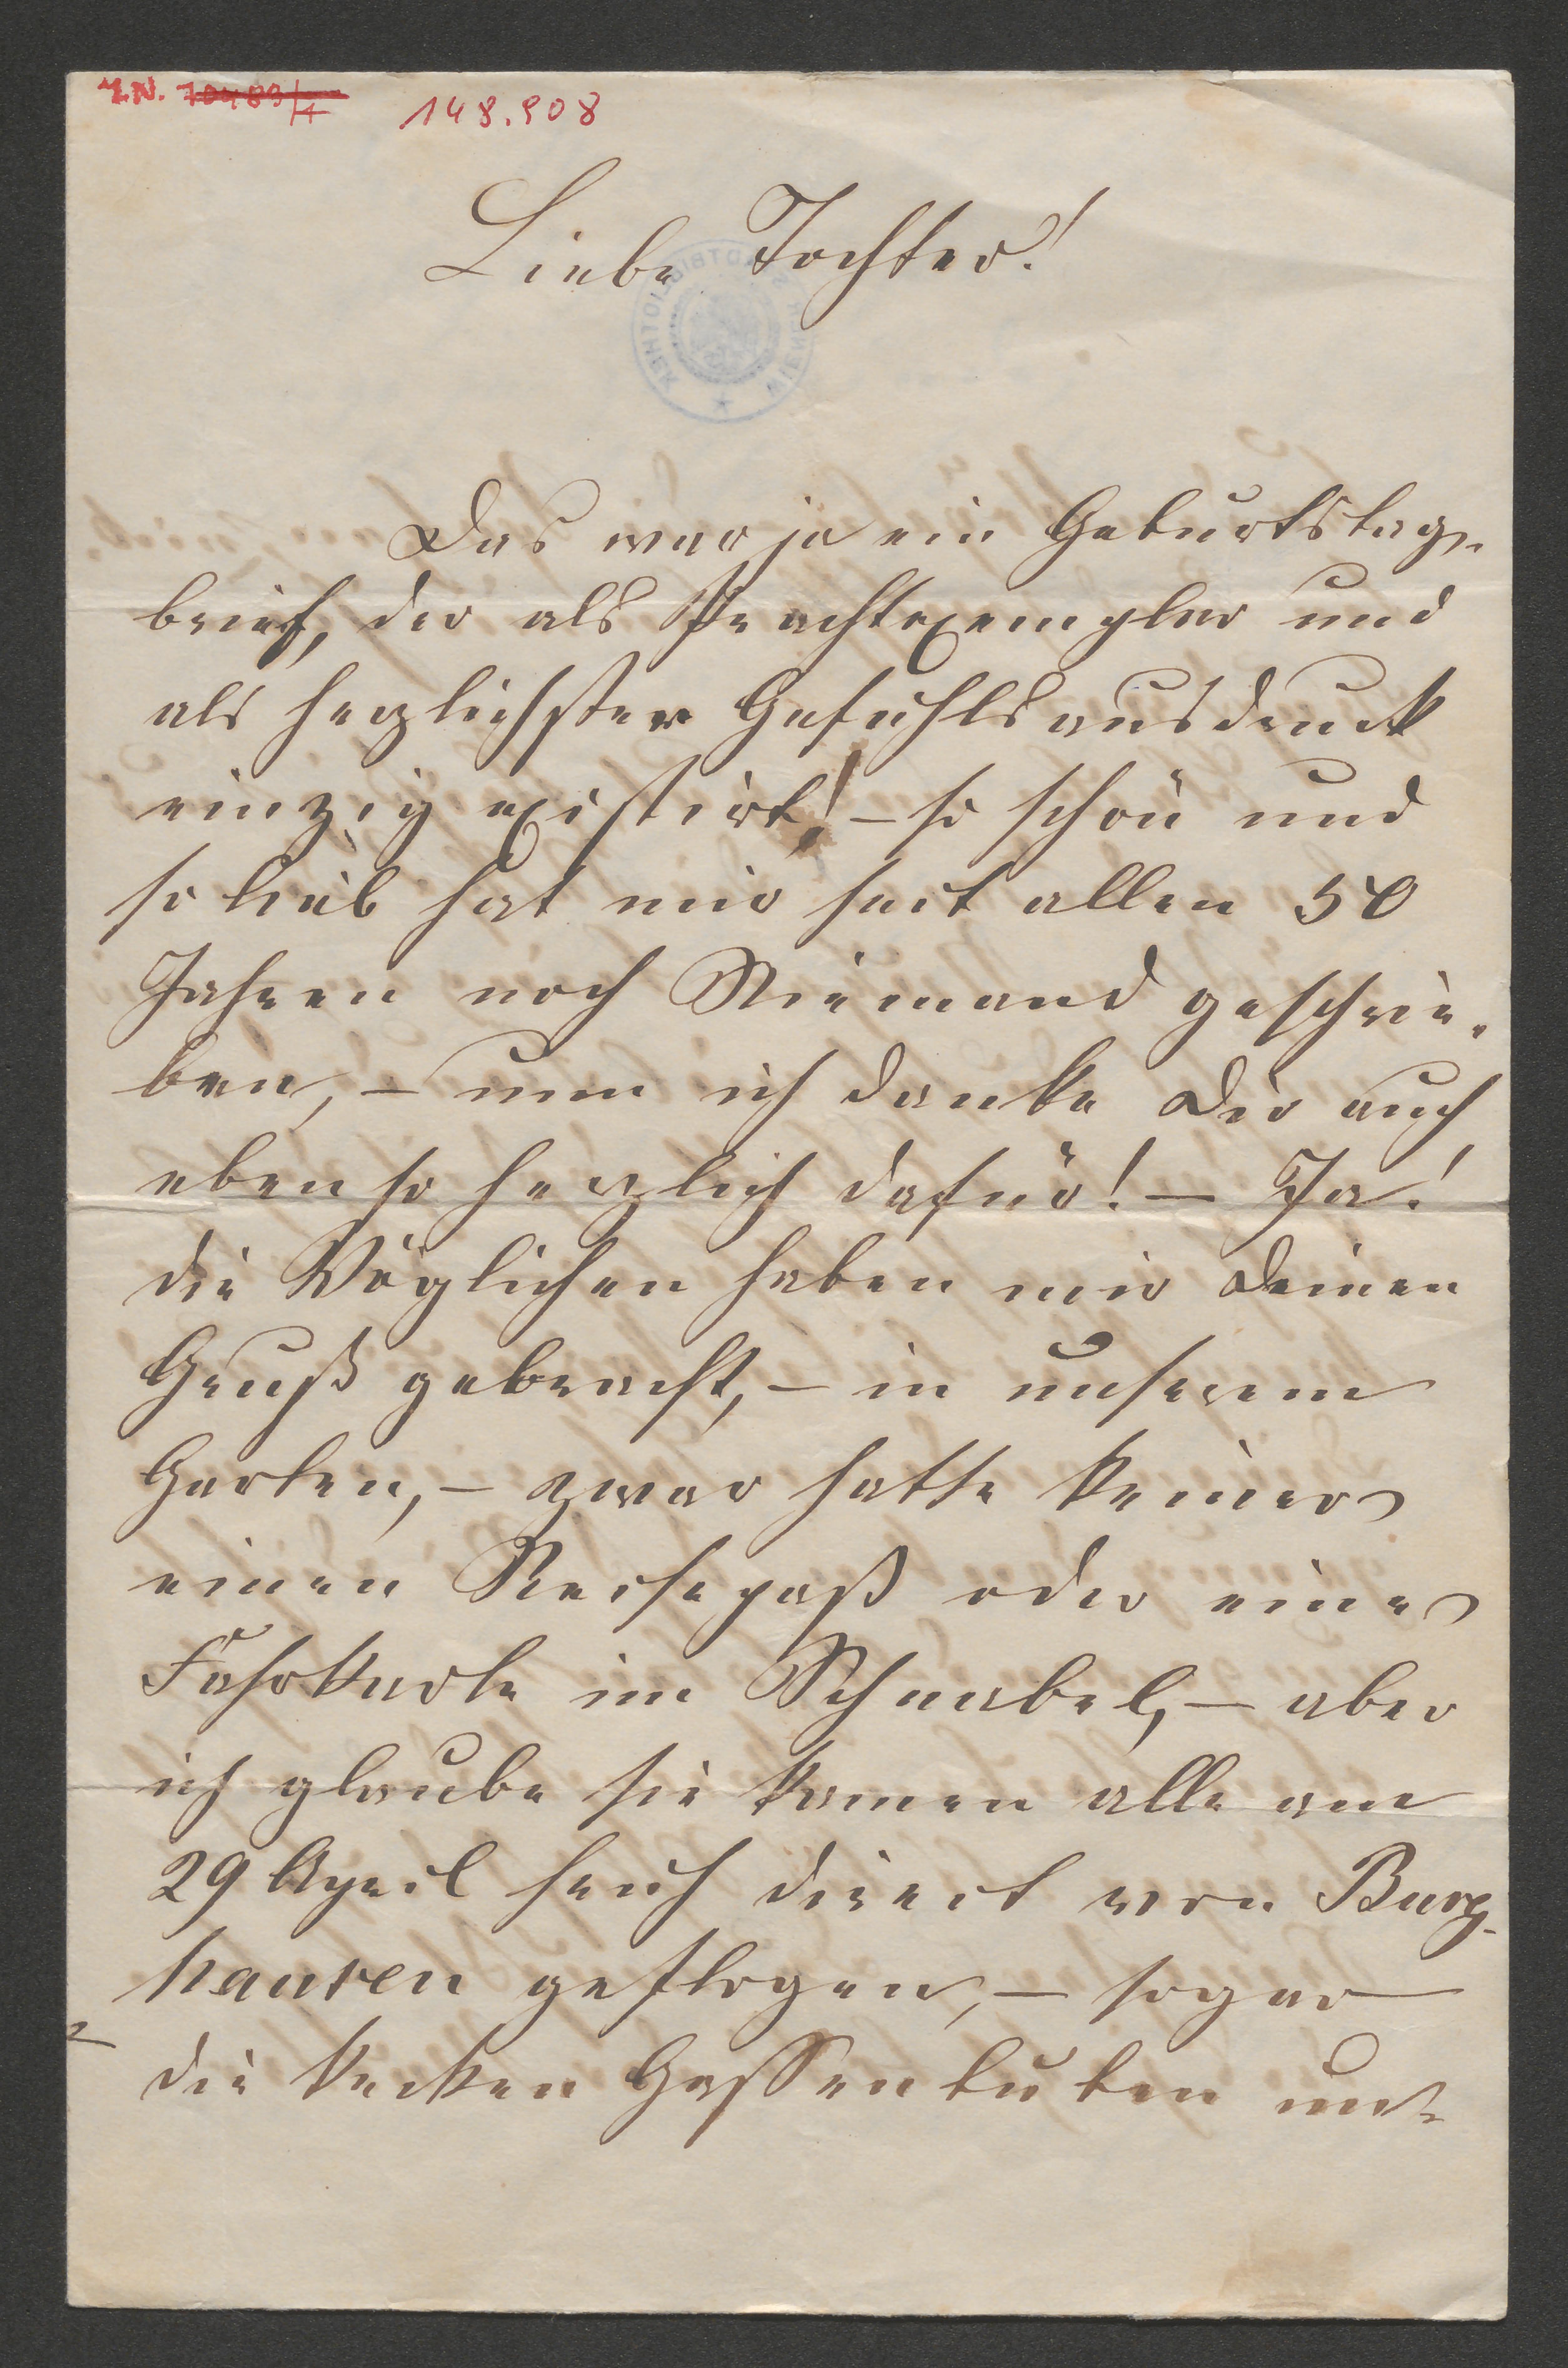 I.N. 70489/1 148.908
Liebe Tochter!
Das war ja ein Geburtstags-
brief, der als Prachtexemplar und
als herzlichster Gefühlsausdruck
einzig existirt! – so schön und
so lieb hat mir seit allen 50
Jahren noch Niemand geschrie-
ben, – nun ich danke Dir auch
ebenso herzlich dafür! – Ja!
die Vöglichen haben mir Deinen
Gruß gebracht, – in unserem
Garten, – zwar hatte keiner
einen Reisepaß oder eine
Fahrkarte im Schnabel, – aber
ich glaube sie kamen alle am
29 April früh direct von Burg-
hausen geflogen, – sogar
die kecken Gassenbuben un-